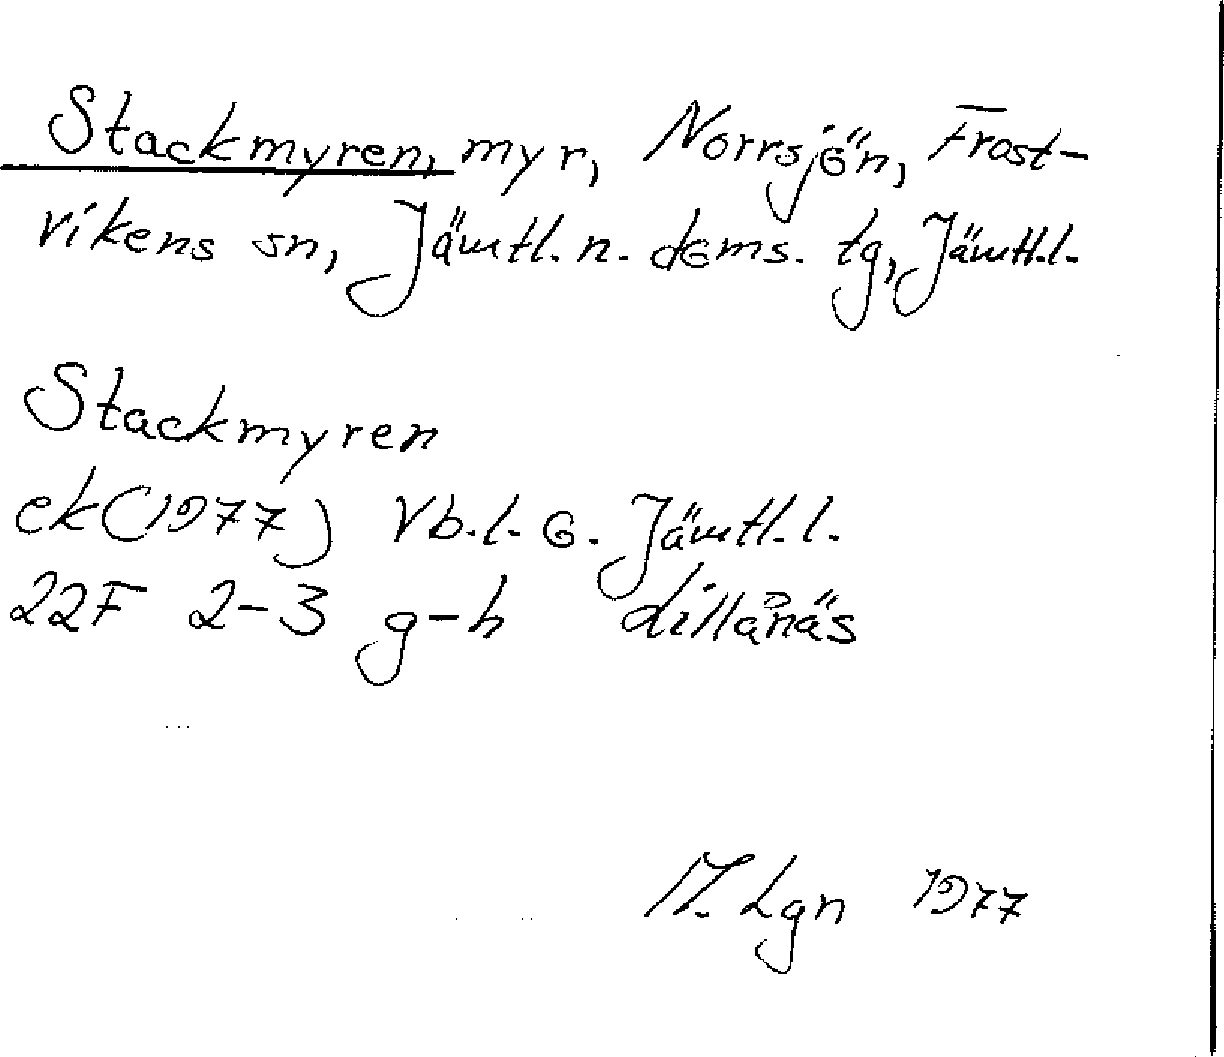 Stackmyren, myr, Norrsjön, Frost-
vikens sn, Jämtl. n. doms. tg, Jämtl.l.
Stackmyren
ek (1977) Vb.l. o. Jämtl.l.
22F 2-3 g-h Lillånäs
M. Lgn 1977